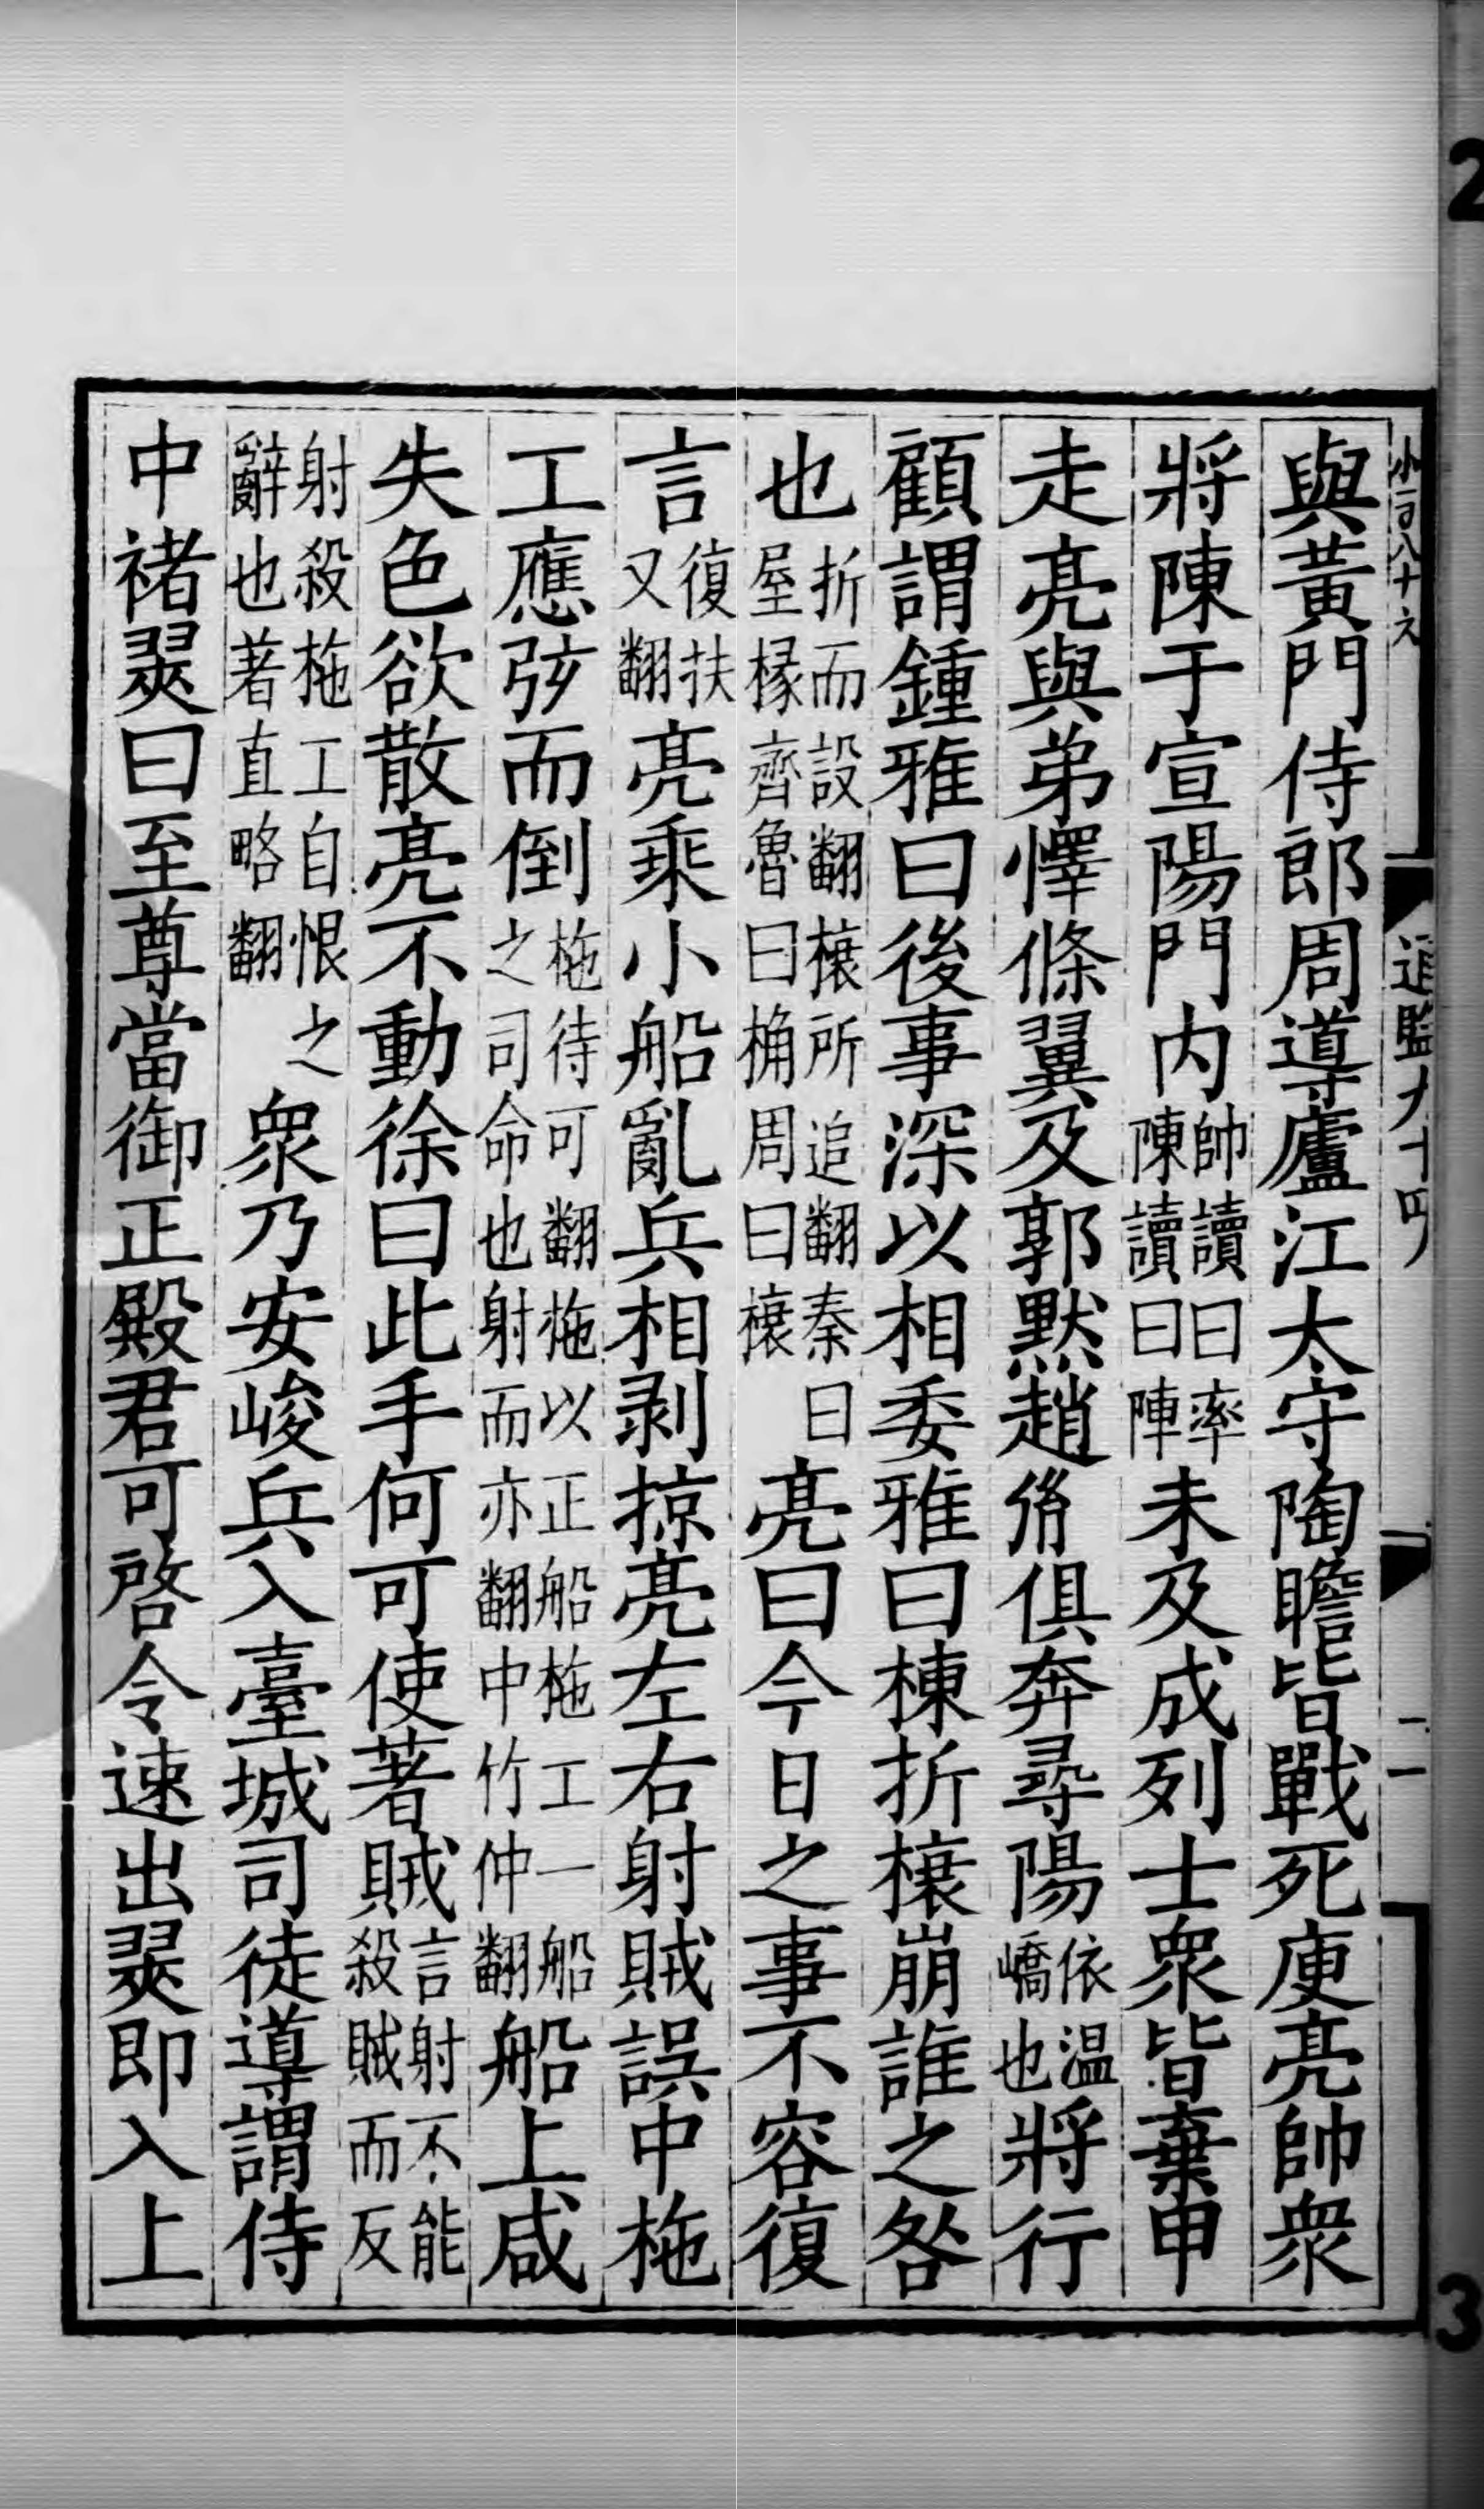 小一百八十九
通鑑九十四
二
與黃門侍郎周導廬江太守陶瞻皆戰死庾亮帥衆
將陳于宣陽門内帥讀曰率陳讀曰陣未及成列士衆皆棄甲
走亮與弟懌條翼及郭默趙㣧俱奔尋陽依温嶠也將行
顧謂鍾雅曰後事深以相委雅曰棟折榱崩誰之咎
也折而設翻榱所追翻秦曰屋椽齊魯曰桷周曰榱亮曰今日之事不容復
言復扶又翻亮乘小船亂兵相剥掠亮左右射賊誤中柂
工應弦而倒柂待可翻柂以正船柂工一船之司命也射而亦翻中竹仲翻船上咸
失色欲散亮不動徐曰此手何可使著賊言射不能殺賊而反
射殺柂工自恨之辭也著直略翻衆乃安峻兵入臺城司徒導謂侍
中褚翜曰至尊當御正殿君可啓令速出翜即入上
2
3